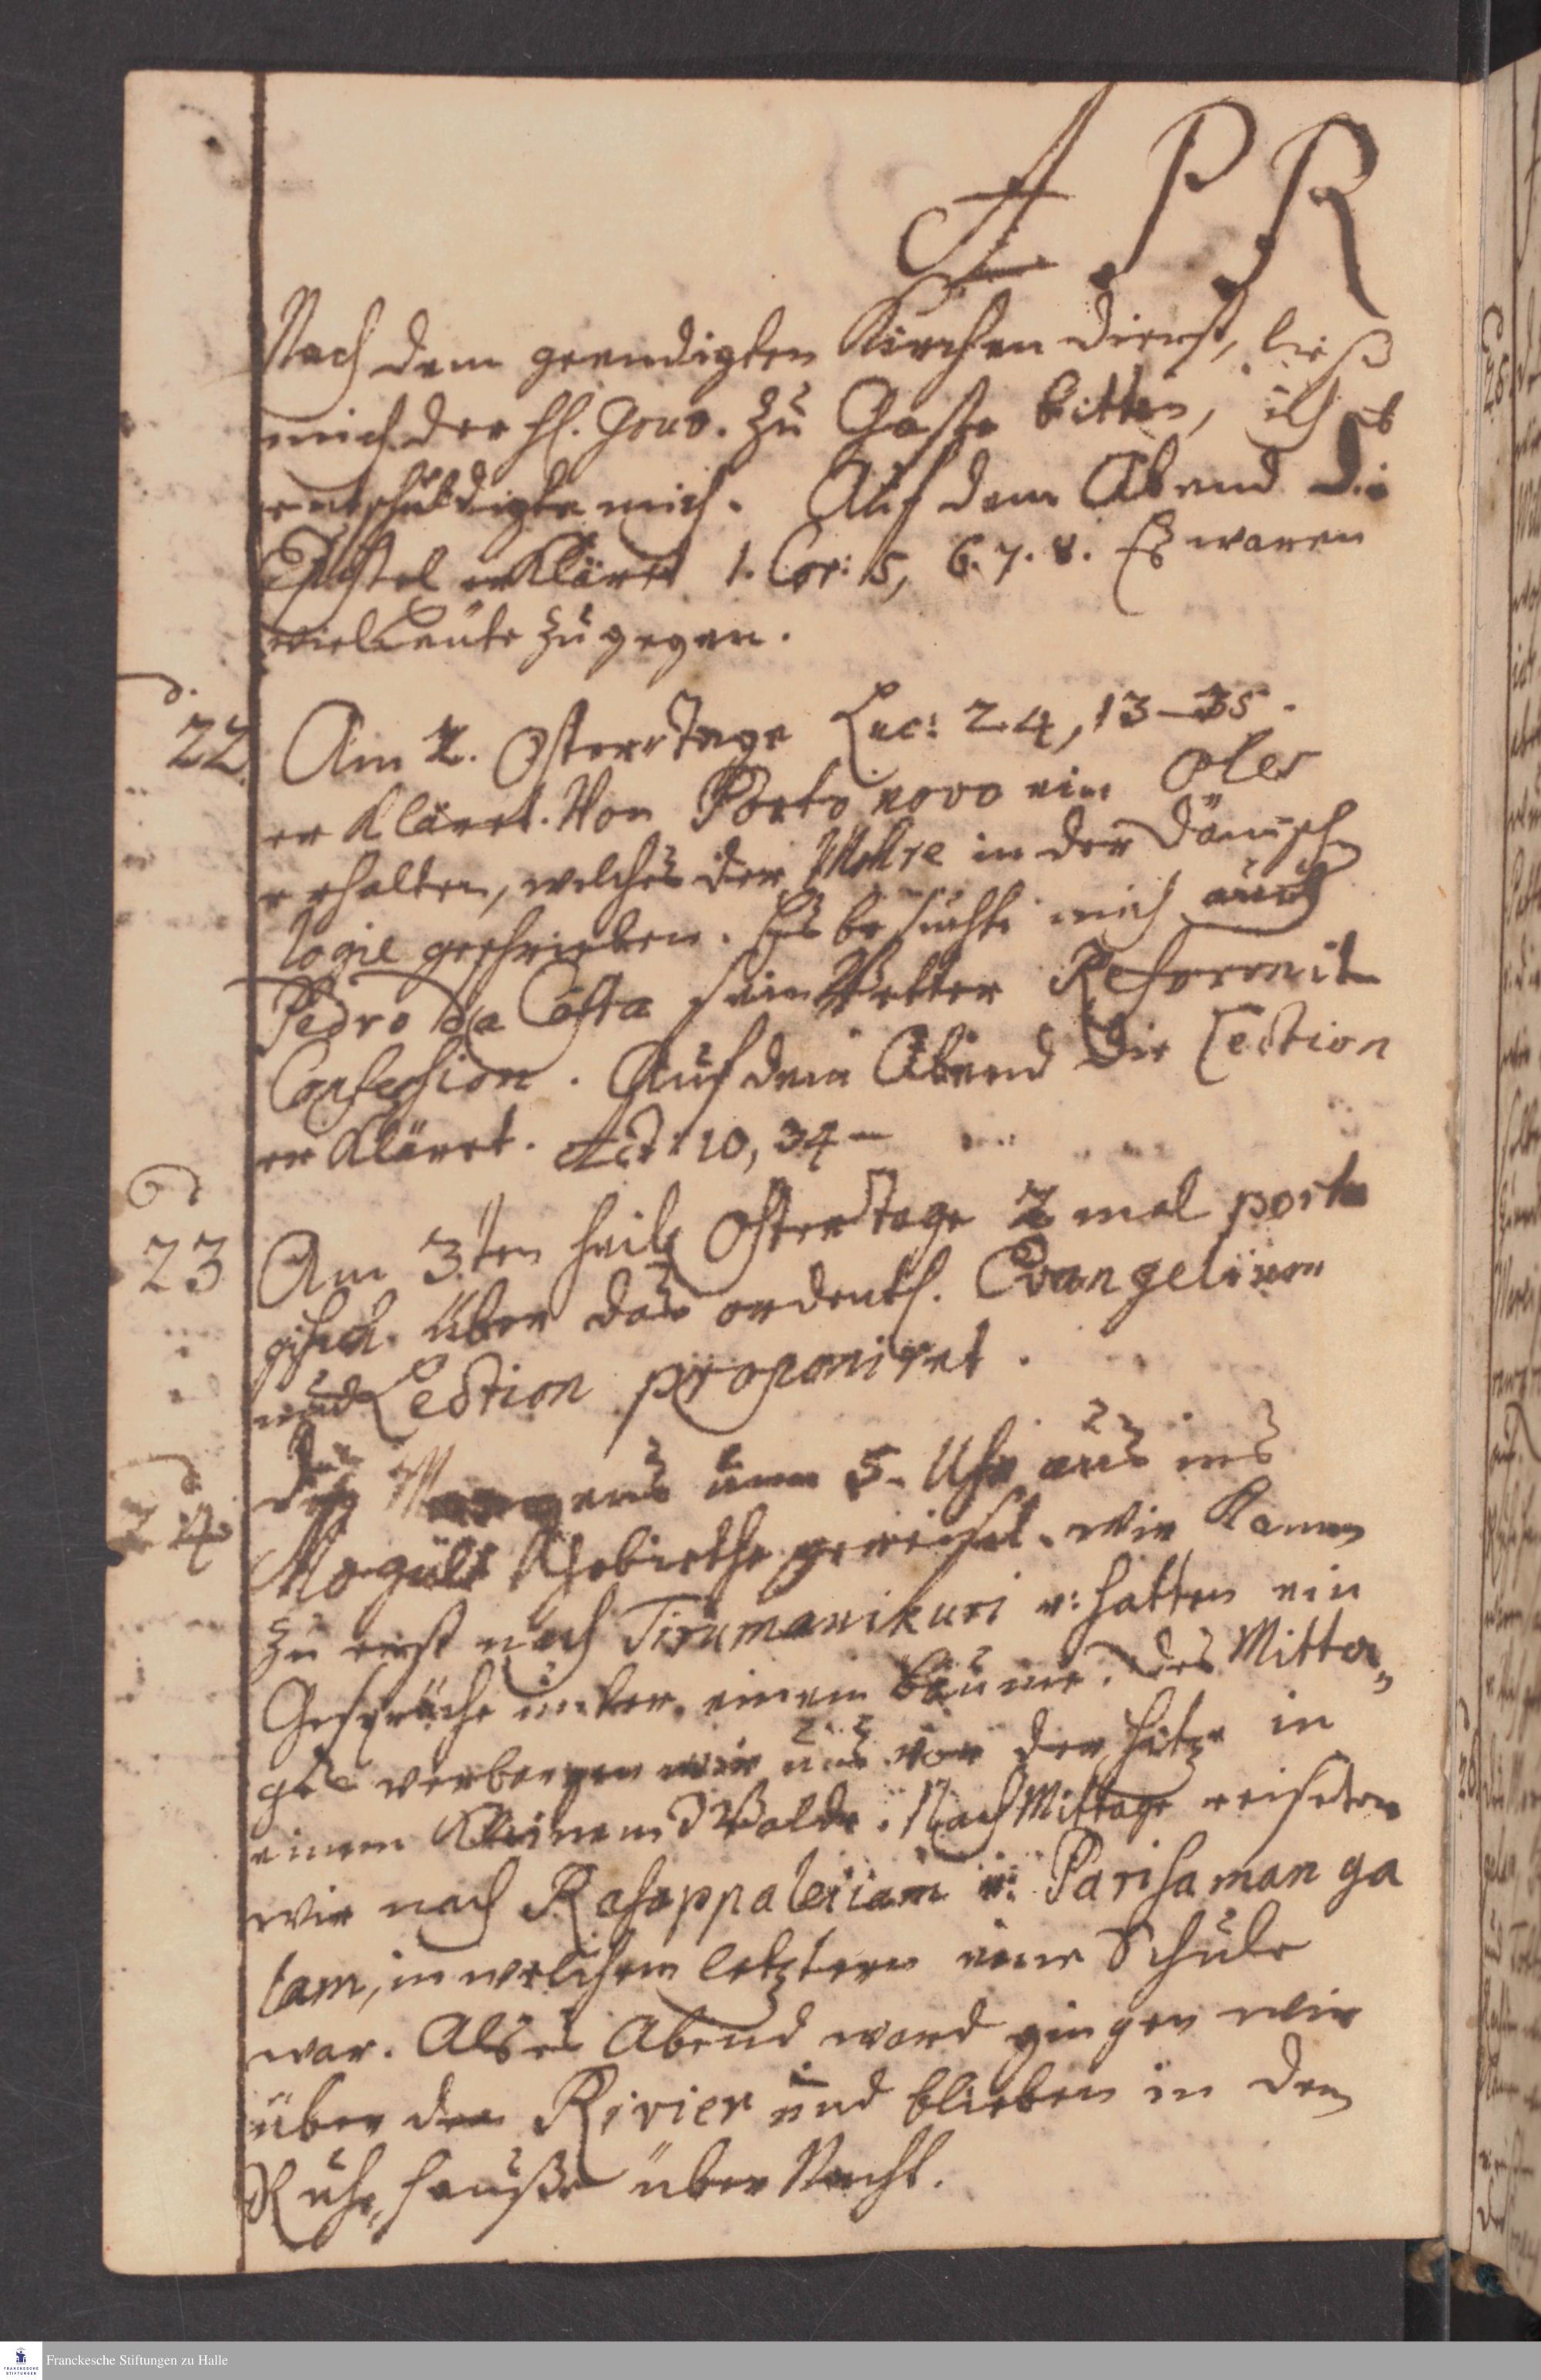 APR
Nach dem geendigten Kirchen dienst, ließ
mich der H. Gouv. zu Gaste bitten, ich
entschuldigte mich. Auf dem Abend die
Epistel erkläret 1. Cor: 5, 6. 7. 8. Es waren
viel Leute zugegen.
22. Am 2. Ostertage Luc: 24, 13-35.
erkläret. Von Porto novo ein Oles
erhalten, welches der in der Dänischen
logie geschrieben. Es besuchte mich auch
Pedro da Costa sein Vetter
Confession. Auf dem Abend die Lection
erkläret. Act: 10, 34-
23 Am 3.ten heil. Ostertage 2 mal portu
gisch. über das ordentl. Evangelium
und Lection proponiret.
24. des Morgens um 5. Uhr aus ins
Moguls Gebiethe gereiset. wir kamen
zu erst nach Tirumanikuri u: hatten ein
Gespräche unter einem Baume. Des Mitta„
ges verbargen wir uns vor der Hitze in
einem kleinem Walde. Nach Mittage reiseten
wir nach Rasappaleiiam u: Parisamanga
lam, in welchem letztern eine Schule
war. Als es Abend ward gingen wir
über den Rivier und blieben in dem
Ruhe„hauße über Nacht.
Franckesche Stiftungen zu Halle
FRANCKESCHE
STIFTUNGEN